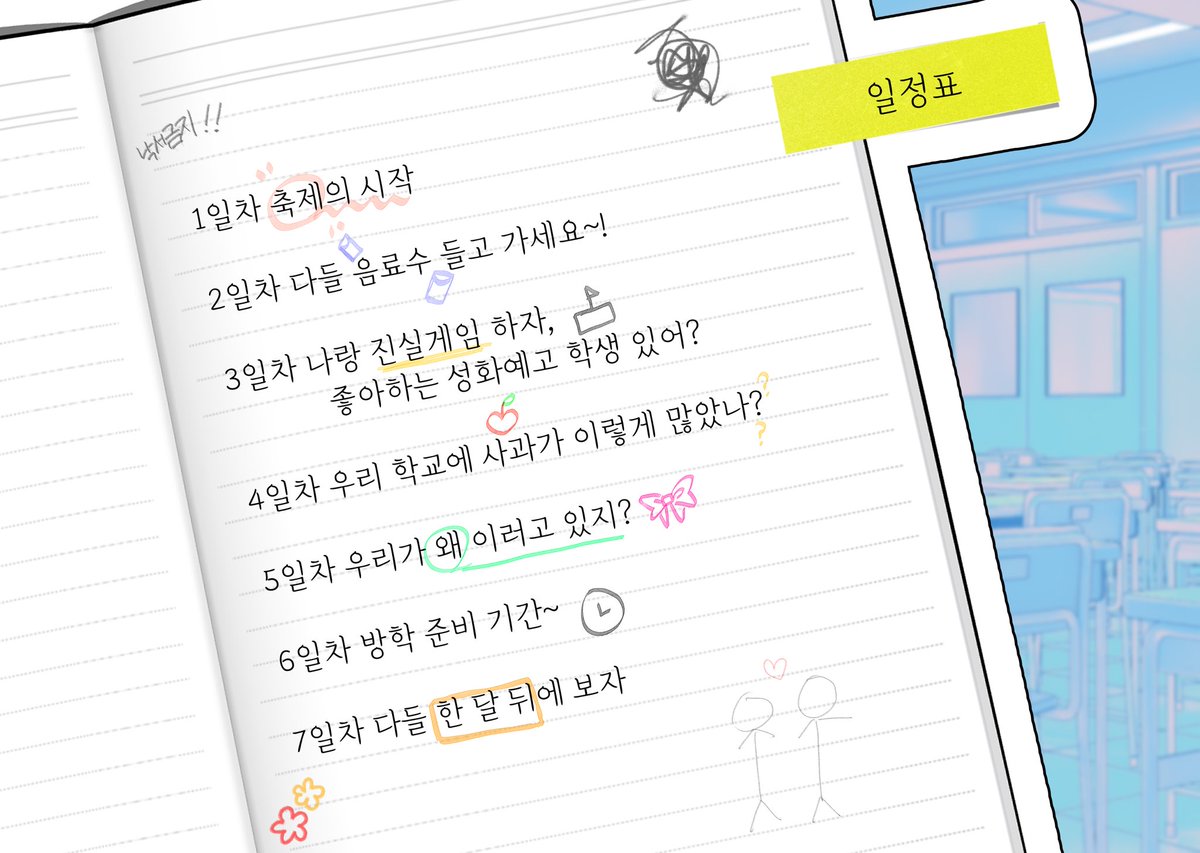 일정표
낙서금지!!
1일차 축제의 시작
2일차 다들 음료수 들고 가세요~!
3일차 나랑 진실게임 하자,
좋아하는 성화예고 학생 있어?
4일차 우리 학교에 사과가 이렇게 많았나?
?
?
5일차 우리가 왜 이러고 있지?
6일차 방학 준비 기간~
7일차 다들 한 달 뒤에 보자